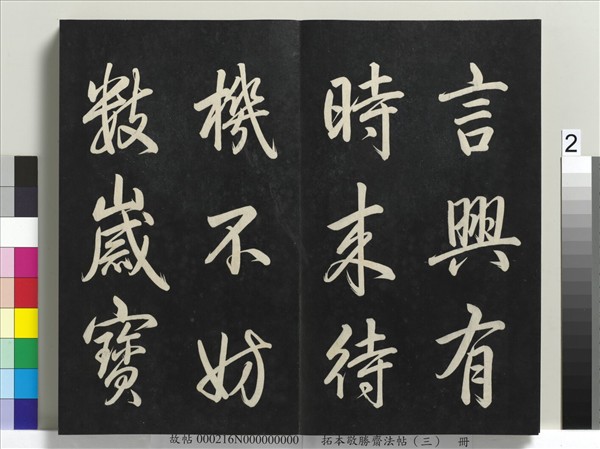 言興有
時來待
機不妨
數歲寶
2
故帖 000216N000000000 拓本敬勝齋法帖(三) 冊